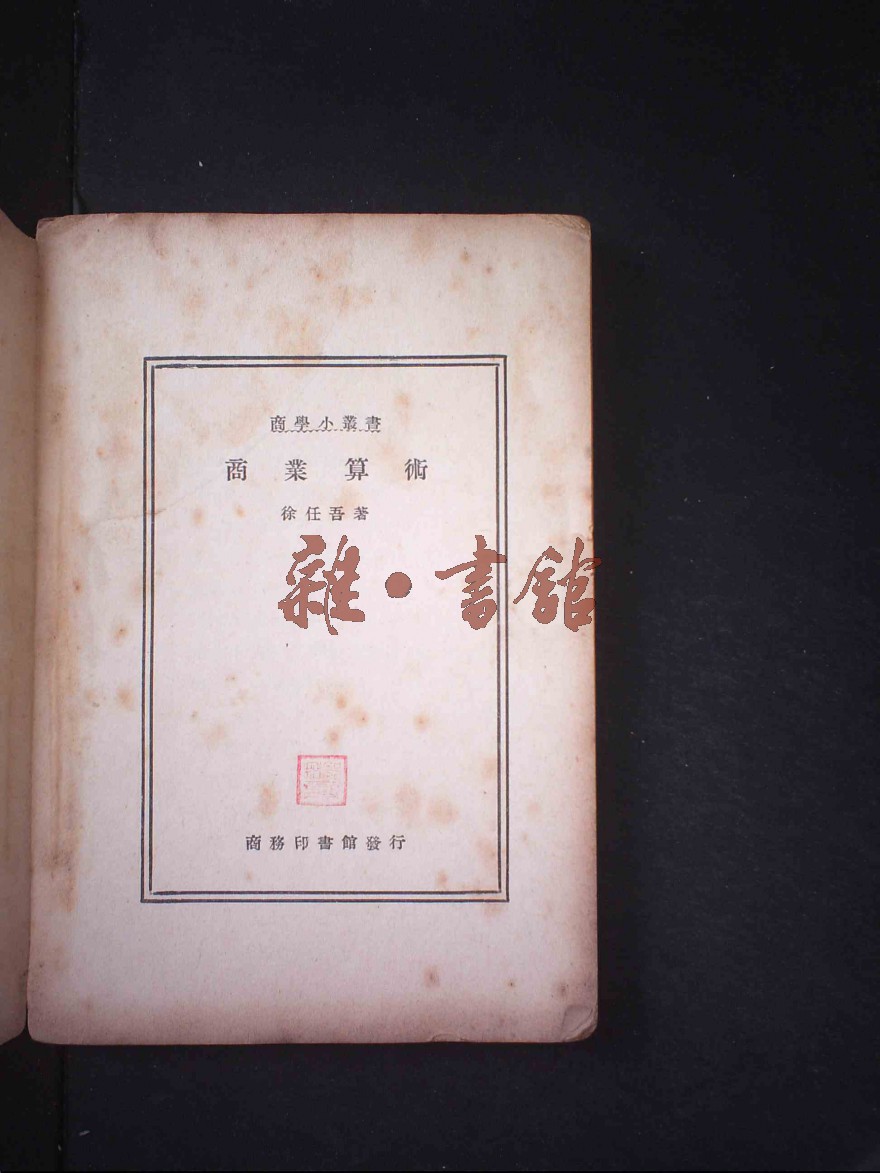 商學小叢書
商業算術
徐任吾著
雜·書館
商務印書館發行